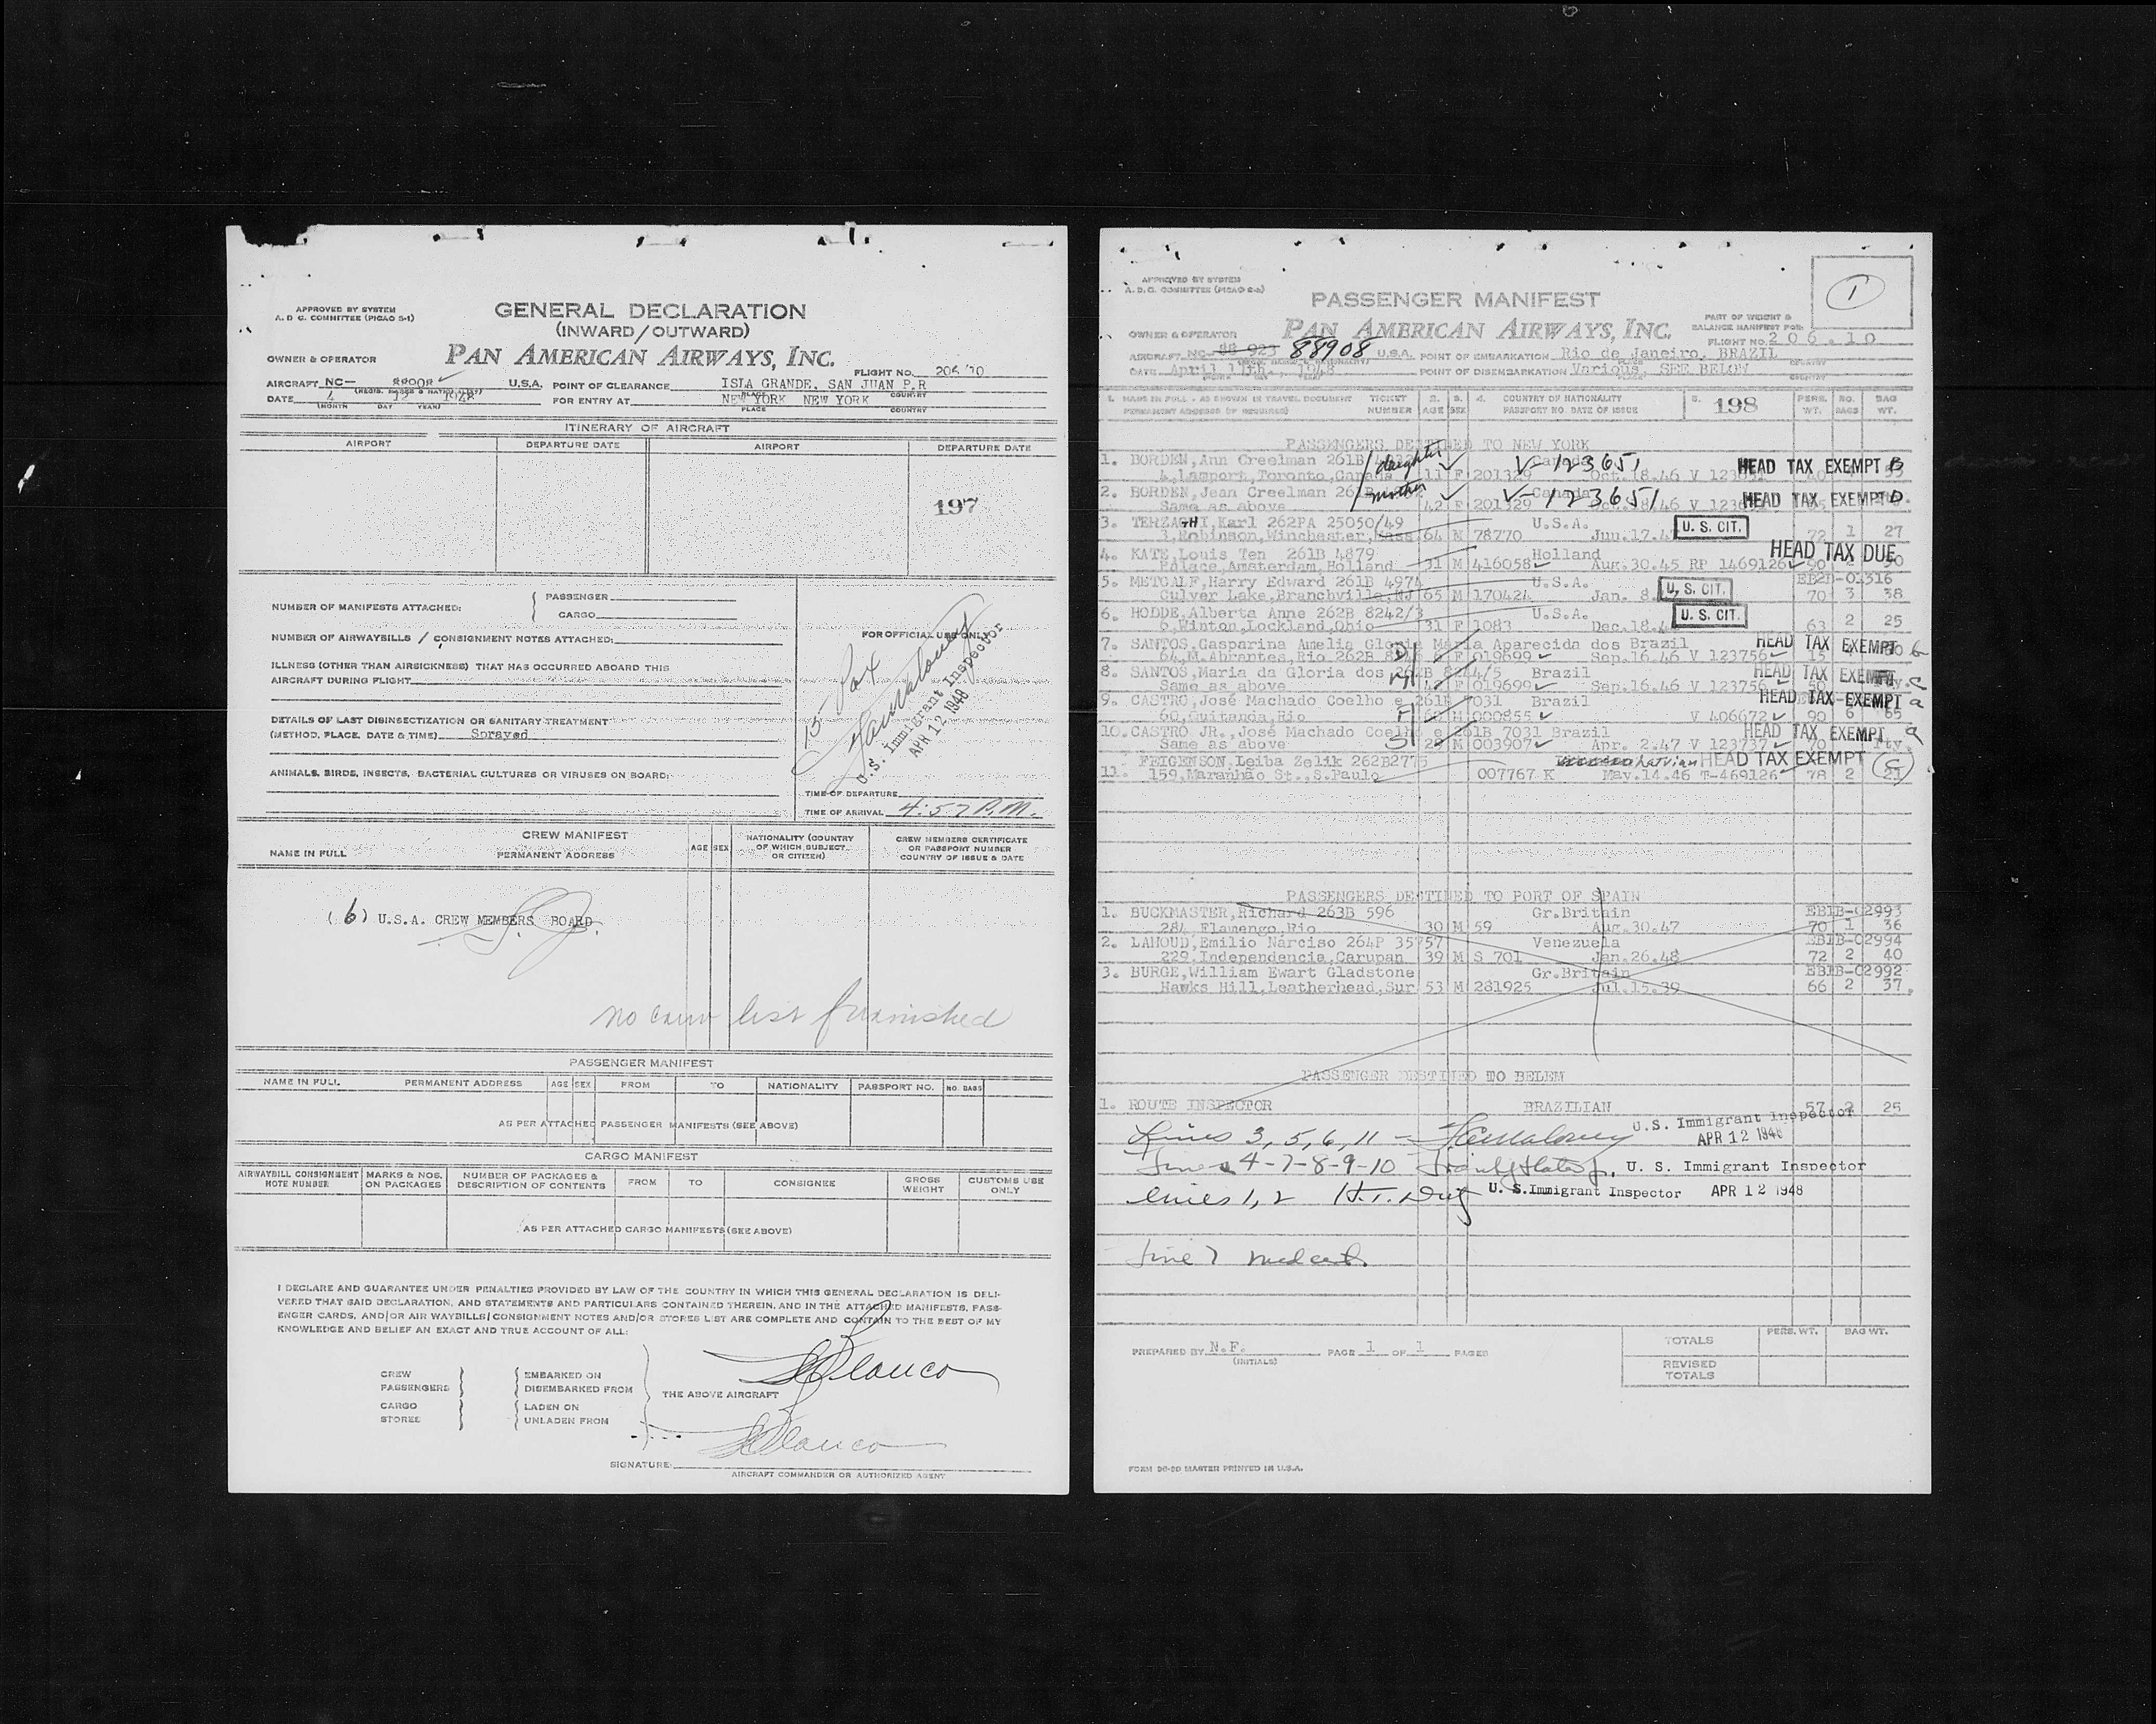 APPROVED BY SYSTEM
A. D. C. COMMITTEE (PICAO S-1)
GENERAL DECLARATION
(INWARD/OUTWARD)
OWNER & OPERATOR
PAN AMERICAN AIRWAYS, INC.
FLIGHT NO. 206/10
AIRCRAFT NC- 88908 U.S.A. POINT OF CLEARANCE ISLA GRANDE, SAN JUAN P.R
DATE 4 12 1948 FOR ENTRY AT NEW YORK NEW YORK
(MONTH DAY YEAR) PLACE COUNTRY
ITINERARY OF AIRCRAFT
AIRPORT DEPARTURE DATE AIRPORT DEPARTURE DATE
197
NUMBER OF MANIFESTS ATTACHED: PASSENGER
CARGO
NUMBER OF AIRWAYBILLS / CONSIGNMENT NOTES ATTACHED:
FOR OFFICIAL USE ONLY
15 Pax
U.S. Immigrant Inspector
APR 12 1948
ILLNESS (OTHER THAN AIRSICKNESS) THAT HAS OCCURRED ABOARD THIS
AIRCRAFT DURING FLIGHT
DETAILS OF LAST DISINSECTIZATION OR SANITARY TREATMENT
(METHOD, PLACE, DATE & TIME) Sprayed
ANIMALS, BIRDS, INSECTS, BACTERIAL CULTURES OR VIRUSES ON BOARD:
TIME OF DEPARTURE
TIME OF ARRIVAL 4:57 P.M.
CREW MANIFEST
NAME IN FULL PERMANENT ADDRESS AGE SEX NATIONALITY (COUNTRY OF WHICH SUBJECT OR CITIZEN) CREW MEMBERS CERTIFICATE OR PASSPORT NUMBER COUNTRY OF ISSUE & DATE
(6) U.S.A. CREW MEMBERS BOARD.
no crew list furnished
PASSENGER MANIFEST
NAME IN FULL PERMANENT ADDRESS AGE SEX FROM TO NATIONALITY PASSPORT NO. NO. BAGS
AS PER ATTACHED PASSENGER MANIFESTS (SEE ABOVE)
CARGO MANIFEST
AIRWAYBILL CONSIGNMENT NOTE NUMBER MARKS & NOS. ON PACKAGES NUMBER OF PACKAGES & DESCRIPTION OF CONTENTS FROM TO CONSIGNEE GROSS WEIGHT CUSTOMS USE ONLY
AS PER ATTACHED CARGO MANIFESTS (SEE ABOVE)
I DECLARE AND GUARANTEE UNDER PENALTIES PROVIDED BY LAW OF THE COUNTRY IN WHICH THIS GENERAL DECLARATION IS DELI-
VERED THAT SAID DECLARATION, AND STATEMENTS AND PARTICULARS CONTAINED THEREIN, AND IN THE ATTACHED MANIFESTS, PASS-
ENGER CARDS, AND/OR AIR WAYBILLS/CONSIGNMENT NOTES AND/OR STORES LIST ARE COMPLETE AND CONTAIN TO THE BEST OF MY
KNOWLEDGE AND BELIEF AN EXACT AND TRUE ACCOUNT OF ALL:
CREW EMBARKED ON
PASSENGERS DISEMBARKED FROM
THE ABOVE AIRCRAFT
CARGO LADEN ON
STORES UNLADEN FROM
Blanco
Blanco
SIGNATURE:
AIRCRAFT COMMANDER OR AUTHORIZED AGENT
1
APPROVED BY SYSTEM
A. D. C. COMMITTEE (PICAO S-2)
PASSENGER MANIFEST
PART OF WEIGHT &
BALANCE MANIFEST FOR:
OWNER & OPERATOR
PAN AMERICAN AIRWAYS, INC.
FLIGHT NO. 206.10
AIRCRAFT NC- 88 923 88908 U.S.A. POINT OF EMBARKATION Rio de Janeiro, BRAZIL
DATE April 11th, 1948 POINT OF DISEMBARKATION Various, SEE BELOW
1. NAME IN FULL - AS SHOWN IN TRAVEL DOCUMENT TICKET 2. 3. 4. COUNTRY OF NATIONALITY 5. 198 PERS. NO. BAG
PERMANENT ADDRESS (IF REQUIRED) NUMBER AGE SEX PASSPORT NO. DATE OF ISSUE WT. BAGS WT.
PASSENGERS DESTINED TO NEW YORK
1. BORDEN, Ann Creelman 261B daughter V-123651 HEAD TAX EXEMPT B
4, Lamport, Toronto, Canada 11 F 201329 Oct.18.46
2. BORDEN, Jean Creelman mother Canada V-123651 HEAD TAX EXEMPT D.
Same as above 42 F 201329 Oct.18.46
3. TERZAGHI, Karl 262PA 25050/49 U.S.A. U. S. CIT.
3, Robinson, Winchester, Mass 64 M 78770 Jun.17. 72 1 27
4. KATE, Louis Ten 261B 4879 Holland HEAD TAX DUE
Palace, Amsterdam, Holland 31 M 416058 Aug.30.45 RP 1469126 90
5. METCALF, Harry Edward 261B 4974 U.S.A. U. S. CIT. EB2B-04316
Culver Lake, Branchville, NJ 65 M 170424 Jan. 8. 70 3 38
6. HODDE, Alberta Anne 262B 8242/3 U.S.A. U. S. CIT.
6, Winton, Lockland, Ohio 31 F 1083 Dec.18. 63 2 25
7. SANTOS, Gasparina Amelia Gloria Maria Aparecida dos Brazil HEAD TAX EXEMPT
64, M. Abrantes, Rio 262B D F 019699 Sep.16.46 V 123756 15
8. SANTOS, Maria da Gloria dos 261B 8244/5 Brazil HEAD TAX EXEMPT
Same as above M F 019699 Sep.16.46 V 123756 50
9. CASTRO, José Machado Coelho e 261B 7031 Brazil HEAD TAX EXEMPT a
60, Quitanda, Rio F 62 M 000855 V 406672 90 6 65
10. CASTRO JR., José Machado Coelho e 261B 7031 Brazil HEAD TAX EXEMPT a
Same as above S M 003907 Apr. 2.47 V 123737 70 Pty.
FEIGENSON, Leiba Zelik 262B2775 Latvian HEAD TAX EXEMPT (C)
11. 159, Maranhão St., S.Paulo 007767 K May.14.46 T-469126 78 2 21
PASSENGERS DESTINED TO PORT OF SPAIN
1. BUCKMASTER, Richard 263B 596 Gr.Britain EB1B-02993
284, Flamengo, Rio 30 M 59 Aug.30.47 70 1 36
2. LAHOUD, Emilio Narciso 264P 35757 Venezuela EB1B-02994
229, Independencia, Carupan 39 M S 701 Jan.26.48 72 2 40
3. BURGE, William Ewart Gladstone Gr.Britain EB1B-02992
Hawks Hill, Leatherhead, Sur 53 M 281925 Jul.15.39 66 2 37.
PASSENGER DESTINED TO BELEM
1. ROUTE INSPECTOR BRAZILIAN 57 2 25
Lines 3, 5, 6, 11 - U.S. Immigrant Inspector
APR 12 1948
Lines 4-7-8-9-10 U. S. Immigrant Inspector
lines 1, 2 U. S. Immigrant Inspector APR 12 1948
Line 7 med cert.
PREPARED BY N.F. PAGE 1 OF 1 PAGES
(INITIALS)
PERS. WT. BAG WT.
TOTALS
REVISED
TOTALS
FORM 90-20 MASTER PRINTED IN U.S.A.